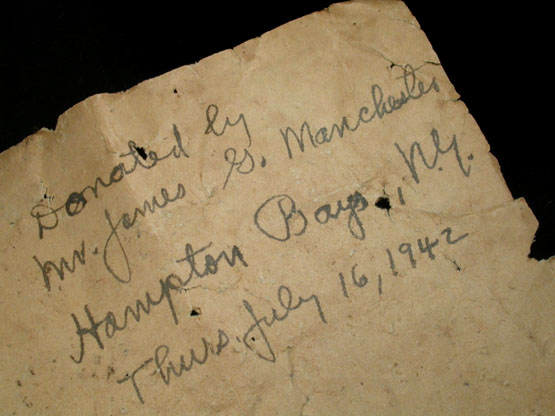 Donated by
Mr. James G. Manchester
Hampton Bays, N.Y.
Thurs. July 16, 1942